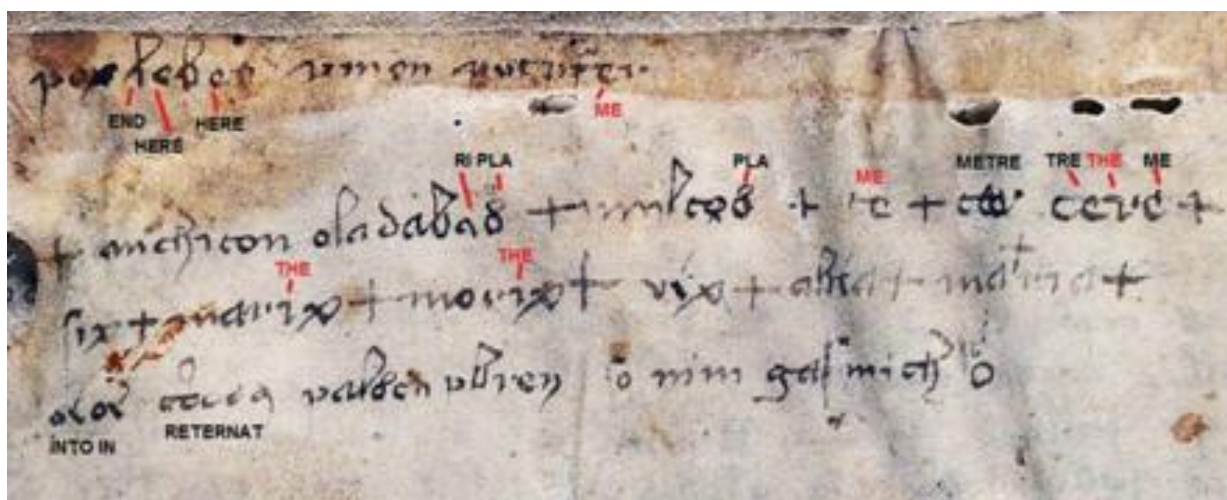 pox leber umen putrifer
END HERE HERE ME
RI PLA PLA ME METRE TRE THE ME
+ anchiton oladabas + multos + te + cere +
THE THE
six + marix + morix + vix + abia + ma+ria +
valsch ubren so nim gas mich o
INTO IN RETERNAT